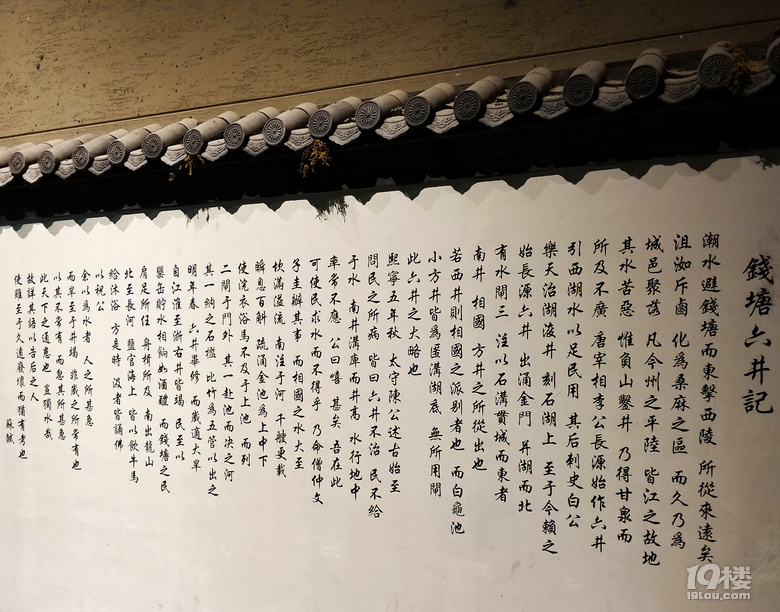 錢塘六井記
潮水避錢塘而東擊西陵 所從來遠矣
沮洳斥鹵 化為桑麻之區 而久乃為
城邑聚落 凡今州之平陸 皆江之故地
其水苦惡 惟負山鑿井 乃得甘泉而
所及不廣 唐宰相李公長源始作六井
引西湖水以足民用 其后刺史白公
樂天治湖浚井 刻石湖上 至于今賴之
始長源六井 出涌金門 并湖而北
有水閘三 注以石溝貫城而東者
南井 相國 方井之所從出也
若西井則相國之派别者也 而白龜池
小方井皆為匿溝湖底 無所用閘
此六井之大略也
熙寧五年秋 太守陳公述古始至
問民之所病 皆曰六井不治 民不給
于水 南井溝庳而井高 水行地中
率常不應 公曰嘻 甚矣 吾在此
可使民求水而不得乎 乃命僧仲文
子圭辦其事 而相國之水大至
坎滿溢流 南注于河 千艘更載
瞬息百斛 疏涌金池為上中下
使浣衣浴馬不及于上池 而列
二閘于門外 其一赴池而决之河
其一納之石檻 比竹為五管以出之
明年春 六井畢修 而歲適大旱
自江淮至浙右井皆竭 民至以
罌缶貯水相餉如酒醴 而錢塘之民
肩足所任 舟楫所及 南出龍山
北至長河 鹽官海上 皆以飲牛馬
給沐浴 方是時 汲者皆誦佛
以祝公
余以為水者 人之所甚急
而旱至于井竭 非歲之所常有也
以其不常有 而忽其所甚急
此天下之通患也 豈獨水哉
故詳其語以告后之人
使雖至于久遠廢壞而猶有考也
蘇軾
19楼
19lou.com